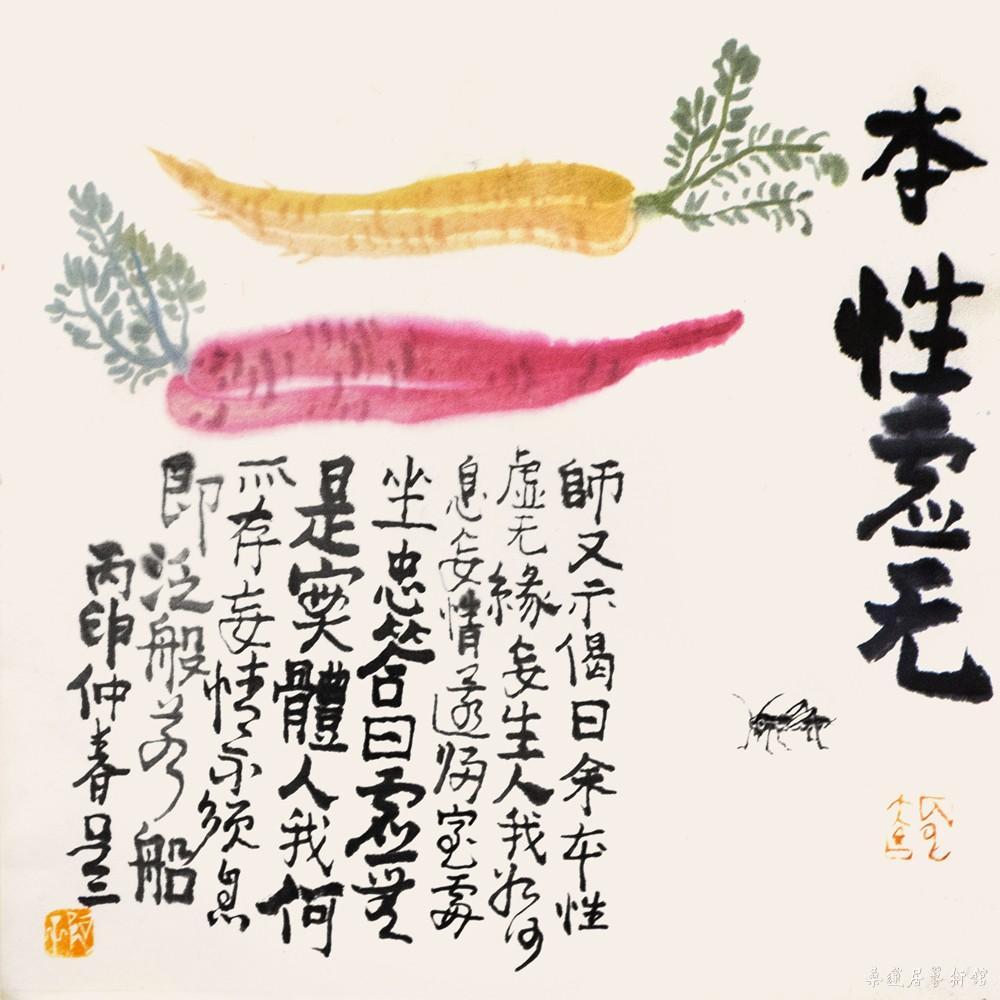 本性虛无
師又示偈曰余本性
虛无緣妄生人我如何
息妄情還歸空處
坐忠答曰虛無
是實體人我何
所存妄情不須息
即泛般若船
丙申仲春
桑蓮居藝術館